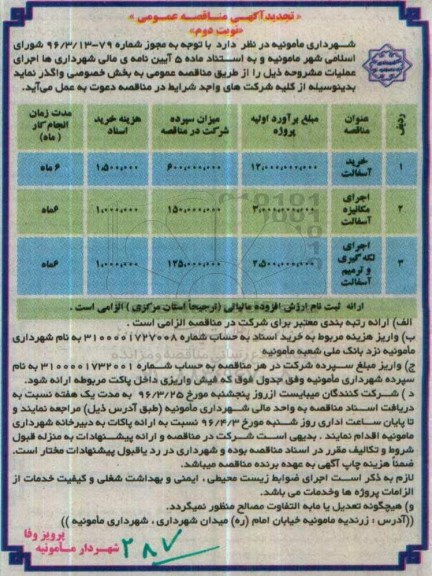 «تجدید آگهی مناقصه عمومی»
«نوبت دوم»
شهرداری مأمونیه در نظر دارد با توجه به مجوز شماره ۷۹-۹۶/۳/۱۳ شورای
اسلامی شهر مامونیه و به استناد ماده ۵ آیین نامه ی مالی شهرداری ها اجرای
عملیات مشروحه ذیل را از طریق مناقصه عمومی به بخش خصوصی واگذر نماید
بدینوسیله از کلیه شرکت های واجد شرایط در مناقصه دعوت به عمل می‌آید.
ردیف عنوان مناقصه مبلغ برآورد اولیه پروژه میزان سپرده شرکت در مناقصه هزینه خرید اسناد مدت زمان انجام کار (ماه)
۱ خرید آسفالت ۱۲,۰۰۰,۰۰۰,۰۰۰ ۶۰۰,۰۰۰,۰۰۰ ۱,۵۰۰,۰۰۰ ۶ ماه
۲ اجرای مکانیزه آسفالت ۳,۰۰۰,۰۰۰,۰۰۰ ۱۵۰,۰۰۰,۰۰۰ ۱,۰۰۰,۰۰۰ ۶ماه
۳ اجرای لکه گیری و ترمیم آسفالت ۲,۵۰۰,۰۰۰,۰۰۰ ۱۲۵,۰۰۰,۰۰۰ ۱,۰۰۰,۰۰۰ ۶ماه
ارائه ثبت نام ارزش افزوده مالیاتی (ترجیحاً استان مرکزی) الزامی است.
الف) ارائه رتبه بندی معتبر برای شرکت در مناقصه الزامی است.
ب) واریز هزینه مربوط به خرید اسناد به حساب شماره ۳۱۰۰۰۰۱۷۳۷۰۰۸ به نام شهرداری
مأمونیه نزد بانک ملی شعبه مأمونیه
ج) واریز مبلغ سپرده شرکت در هر مناقصه به حساب شماره ۳۱۰۰۰۰۱۷۳۲۰۰۱ به نام
سپرده شهرداری مأمونیه وفق جدول فوق که فیش واریزی داخل پاکت مربوطه ارائه شود.
د) شرکت کنندگان میبایست ازروز پنجشنبه مورخ ۹۶/۳/۲۵ به مدت یک هفته نسبت به
دریافت اسناد مناقصه به واحد مالی شهرداری مأمونیه (طبق آدرس ذیل) مراجعه نمایند و
تا پایان ساعت اداری روز شنبه مورخ ۹۶/۴/۳ نسبت به ارائه پاکات به دبیرخانه شهرداری
مامونیه اقدام نمایند. بدیهی است شرکت در مناقصه و ارائه پیشنهادات به منزله قبول
شروط و تکالیف مقرر در اسناد مناقصه بوده و شهرداری در رد یاقبول پیشنهادات مختار است.
ضمناً هزینه چاپ آگهی به عهده برنده مناقصه میباشد.
لازم به ذکر است اجرای ضوابط زیست محیطی، ایمنی و بهداشت شغلی و کیفیت خدمات از
الزامات پروژه ها وخدمات می باشد.
و) هیچگونه تعدیل یا مابه التفاوت مصالح منظور نمیگردد.
((آدرس: زرندیه مامونیه خیابان امام (ره) میدان شهرداری، شهرداری مأمونیه))
پرویز وفا
شهردار مأمونیه
۲۸۷